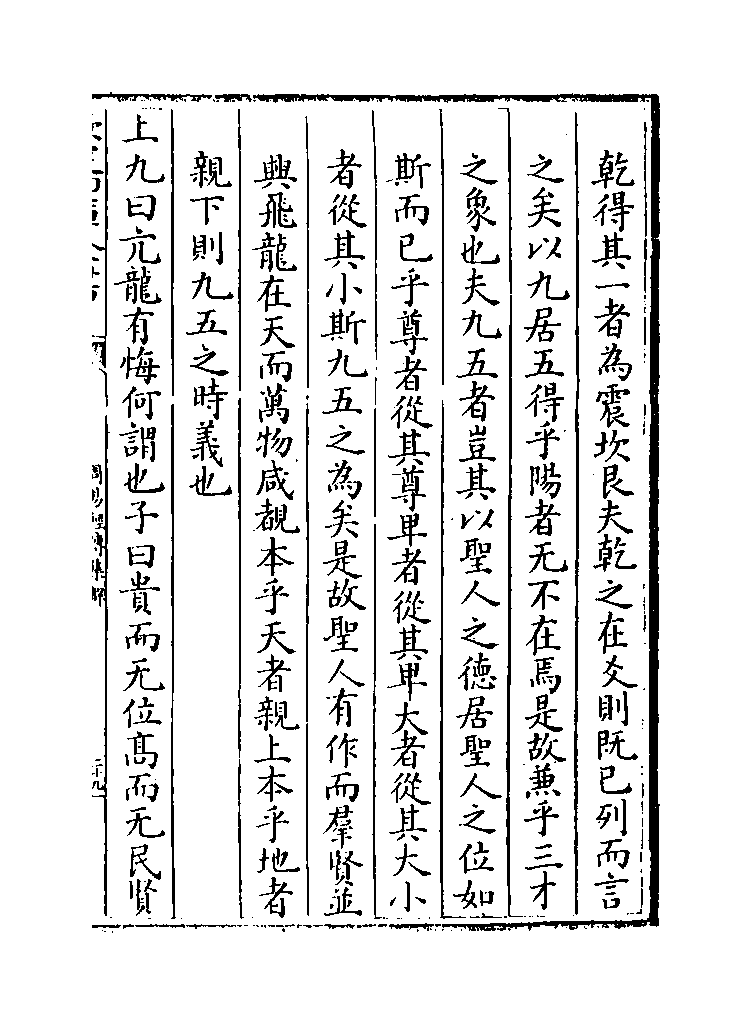 乾得其一者為震坎艮夫乾之在爻則既已列而言
之矣以九居五得乎陽者无不在焉是故兼乎三才
之象也夫九五者豈其以聖人之德居聖人之位如
斯而已乎尊者從其尊卑者從其卑大者從其大小
者從其小斯九五之為矣是故聖人有作而羣賢並
興飛龍在天而萬物咸覩本乎天者親上本乎地者
親下則九五之時義也
上九曰亢龍有悔何謂也子曰貴而无位髙而无民賢
周易經傳集解
二十九